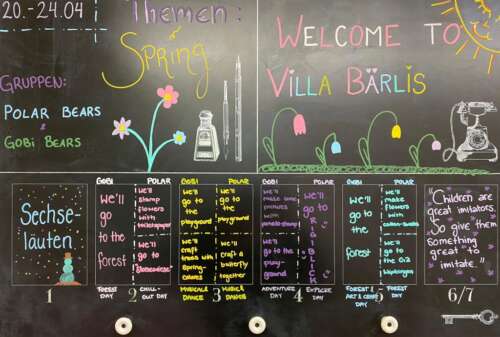 20.-24.04
Themen:
Spring
GRUPPEN:
POLAR BEARS
&
GOBI BEARS
WELCOME TO
VILLA BÄRLIS
Sechse-
läuten
1
GOBI
we'll
go
to the
forest
FOREST
DAY
2
POLAR
we'll
stamp
flowers
with
toiletpaper
we'll
go to
CHILL-
OUT DAY
GOBI
we'll
go
to the
playground
we'll
craft
trees with
spring-
colores
MUSIC &
DANCE
3
POLAR
we'll
go to
the
playground
we'll
craft a
butterfly
together
MUSIC &
DANCE
GOBI
we'll
go to the
play-
ground
ADVENTURE
DAY
4
POLAR
we'll
go to
RIGIBLICK
EXPLORE
DAY
GOBI
we'll
go
to
the
forest
FOREST &
ART & CRAFT
DAY
5
POLAR
we'll
make
flowers
with
cotton-swabs
we'll
go to
the GZ
FOREST
DAY
"Children are
great imitators.
So give them
something
great to
imitate."
6/7